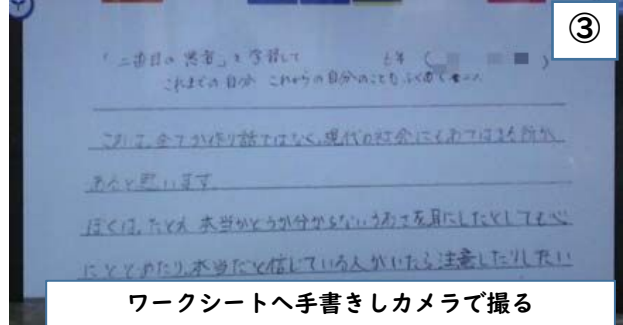 ③
「二番目の悪者」を学習して 6年(
これまでの自分 これからの自分のことも ふくめて
これは、全てが作り話ではなく、現代の社会にもあてはまる所が
あると思います。
ぼくは、たとえ 本当かどうか分からないうわさを耳にしたとしても心
にとどめたり、本当だと信じている人がいたら注意したりしたい
ワークシートへ手書きしカメラで撮る